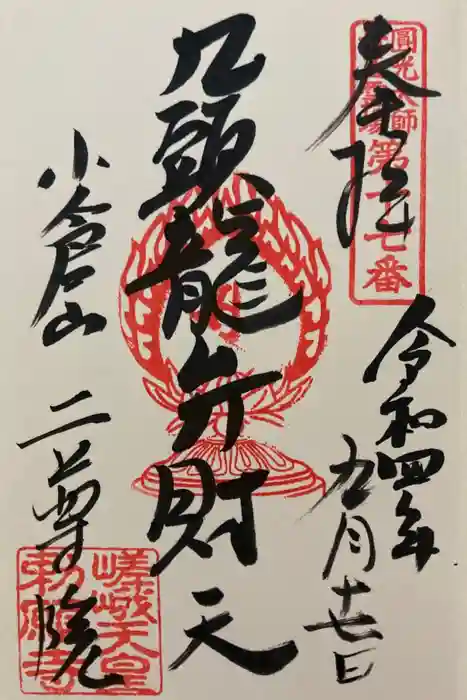 奉拝
圓光大師
霊場第十七番
令和四年
九月十七日
九頭龍弁財天
小倉山 二尊院
嵯峨天皇
勅願寺